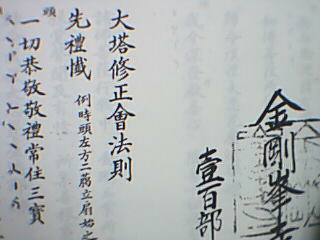 金剛峯寺
壹百部
大塔修正會法則
先禮懺 例時頭左方二﨟立扇始之
頭
一切恭敬敬禮常住三寶